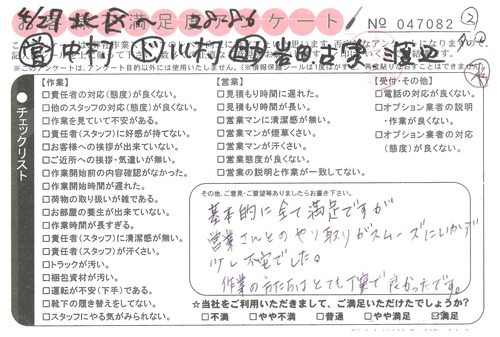 お客様満足度アンケート
№ 047082 ②
8/27 北区～
営 中村 ド 川村 助 岩田 古賀 渡辺
チェックリスト
【作業】
□責任者の対応(態度)が良くない。
□他のスタッフの対応(態度)が良くない。
□作業を見ていて不安がある。
□責任者(スタッフ)に好感が持てない。
□お客様への挨拶が出来ていない。
□ご近所への挨拶・気遣いが無い。
□作業開始前の内容確認がなかった。
□作業開始時間が遅れた。
□荷物の取り扱いが雑である。
□お部屋の養生が出来ていない。
□作業時間が長すぎる。
□責任者(スタッフ)に清潔感が無い。
□責任者(スタッフ)が汗くさい。
□トラックが汚い。
□梱包資材が汚い。
□運転が不安(下手)である。
□靴下の履き替えをしてない。
□スタッフにやる気がみられない。
【営業】
□見積もり時間に遅れた。
□見積もり時間が長い。
□営業マンに清潔感が無い。
□営業マンが煙草くさい。
□営業マンが汗くさい。
□営業態度が良くない。
□営業の説明と作業が一致してない。
【受付・その他】
□電話の対応が良くない。
□オプション業者の説明
・作業が良くない。
□オプション業者の対応
(態度)が良くない。
その他、ご意見・ご要望等ありましたらお書き下さい。
基本的に全て満足ですが
営業さんとのやり取りがスムーズにいかず
少し不安でした。
作業の方たちはとても丁寧で良かったです。
☆当社をご利用いただきまして、ご満足いただけたでしょうか?
□不満 □やや不満 □普通 □やや満足 ☑満足